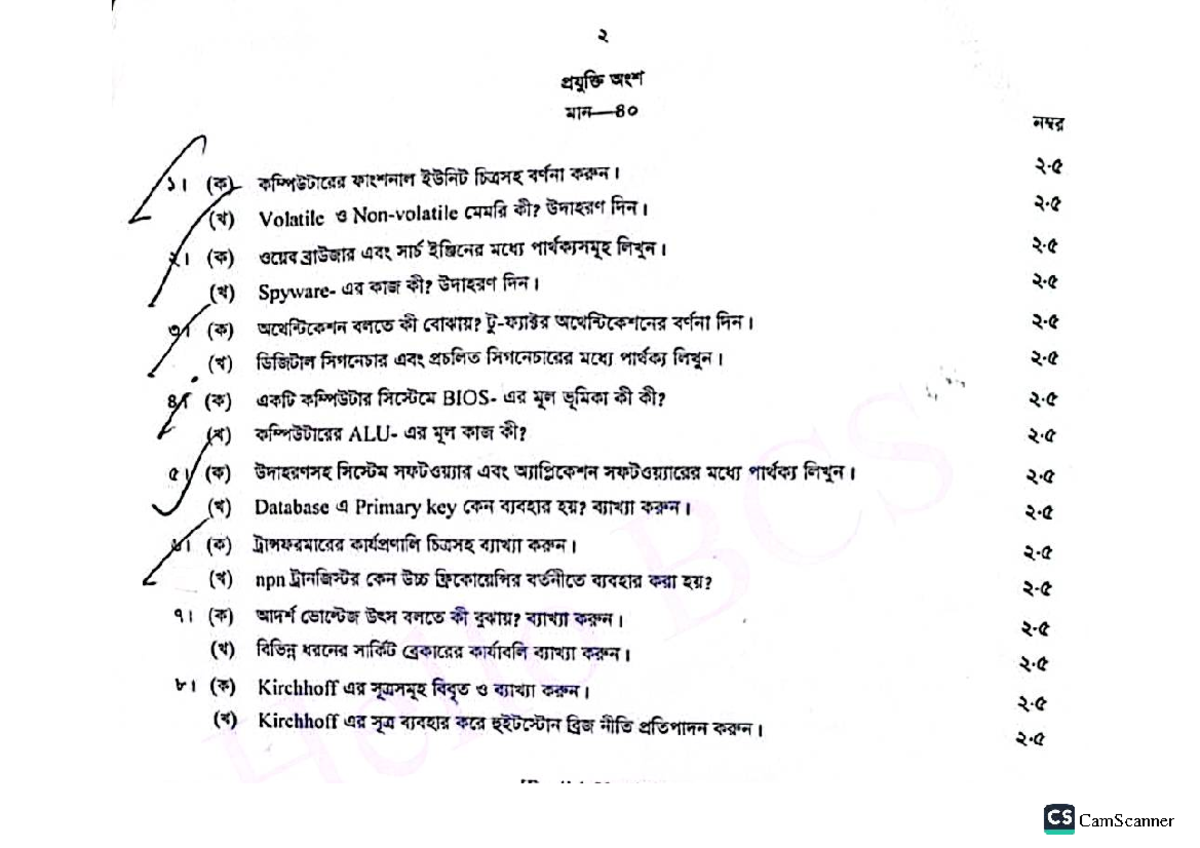 ২
প্রযুক্তি অংশ
মান—৪০
নম্বর
১। (ক) কম্পিউটারের ফাংশনাল ইউনিট চিত্রসহ বর্ণনা করুন। ২.৫
(খ) Volatile ও Non-volatile মেমরি কী? উদাহরণ দিন। ২.৫
২। (ক) ওয়েব ব্রাউজার এবং সার্চ ইঞ্জিনের মধ্যে পার্থক্যসমূহ লিখুন। ২.৫
(খ) Spyware- এর কাজ কী? উদাহরণ দিন। ২.৫
৩। (ক) অথেন্টিকেশন বলতে কী বোঝায়? টু-ফ্যাক্টর অথেন্টিকেশনের বর্ণনা দিন। ২.৫
(খ) ডিজিটাল সিগনেচার এবং প্রচলিত সিগনেচারের মধ্যে পার্থক্য লিখুন। ২.৫
৪। (ক) একটি কম্পিউটার সিস্টেমে BIOS- এর মূল ভূমিকা কী কী? ২.৫
(খ) কম্পিউটারের ALU- এর মূল কাজ কী? ২.৫
৫। (ক) উদাহরণসহ সিস্টেম সফটওয়্যার এবং অ্যাপ্লিকেশন সফটওয়্যারের মধ্যে পার্থক্য লিখুন। ২.৫
(খ) Database এ Primary key কেন ব্যবহার হয়? ব্যাখ্যা করুন। ২.৫
৬। (ক) ট্রান্সফরমারের কার্যপ্রণালি চিত্রসহ ব্যাখ্যা করুন। ২.৫
(খ) npn ট্রানজিস্টর কেন উচ্চ ফ্রিকোয়েন্সির বর্তনীতে ব্যবহার করা হয়? ২.৫
৭। (ক) আদর্শ ভোল্টেজ উৎস বলতে কী বুঝায়? ব্যাখ্যা করুন। ২.৫
(খ) বিভিন্ন ধরনের সার্কিট ব্রেকারের কার্যাবলি ব্যাখ্যা করুন। ২.৫
৮। (ক) Kirchhoff এর সূত্রসমূহ বিবৃত ও ব্যাখ্যা করুন। ২.৫
(খ) Kirchhoff এর সূত্র ব্যবহার করে হুইটস্টোন ব্রিজ নীতি প্রতিপাদন করুন। ২.৫
Hello BCS
CS CamScanner